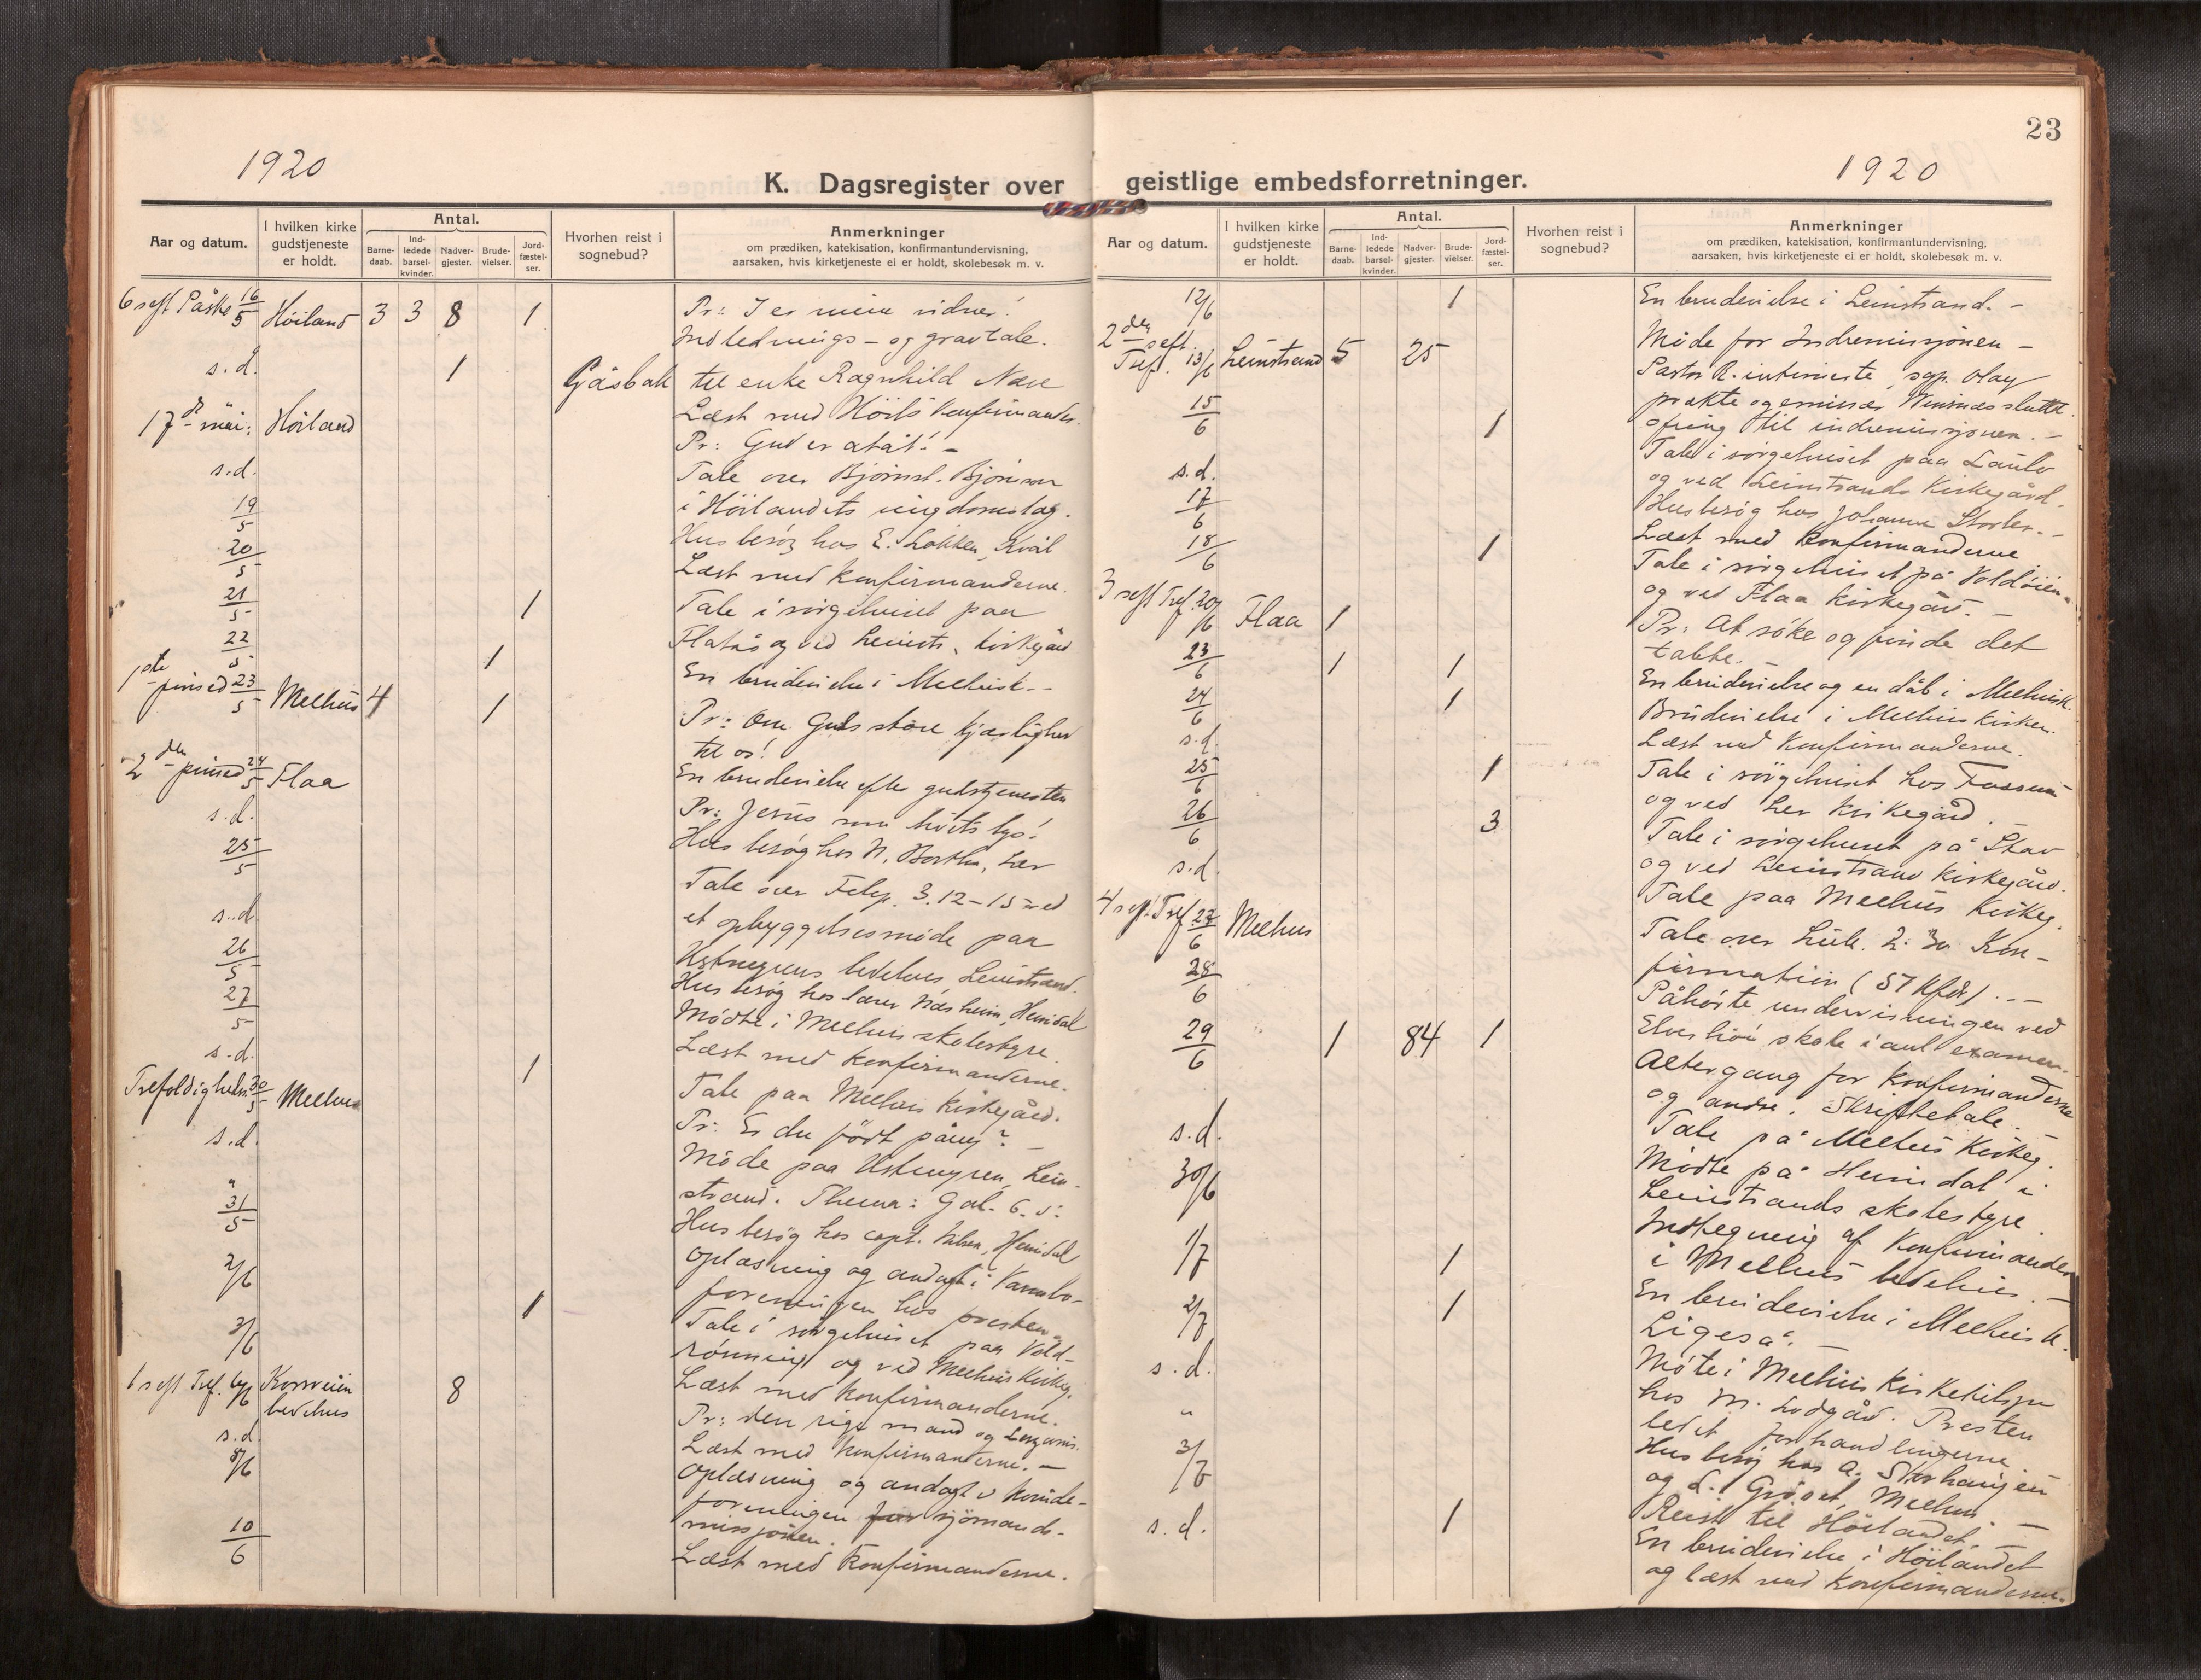 23
1920
1920
K. Dagsregister over geistlige embedsforretninger.
Aar og datum.
I hvilken kirke gudstjeneste er holdt.
Antal.
Barne-daab.
Ind-ledede barsel-kvinder.
Nadver-gjester.
Brude-vielser.
Jord-fæstel-ser.
Hvorhen reist i sognebud?
Anmerkninger
om prædiken, katekisation, konfirmantundervisning,
aarsaken, hvis kirketjeneste ei er holdt, skolebesøk m. v.
6 s eft Påske 16/5 Höiland 3 3 8 1 Pr: I er mine vidner!
Indlednings- og gravtale.
s. d. 1 Gåsbak til enke Ragnhild
Læst med Höil's Konfirmander.
17de mai: Höiland Pr: Gud er
s.d. Tale over Bjørnst. Bjørnson
i Höilandets ungdomslag.
19/5 Husbesög hos E. Løkken, Kvål
20/5 Læst med Konfirmanderne.
21/5 1 Tale i sörgehuset paa
Flatås og ved Leinstr. kirkegård
22/5 1 En brudevielse i Melhusk.
1ste pinsed 23/5 Melhus 4 1 Pr: Om Guds store kjærlighed
til os!
En brudevielse efter gudstjenesten
2den pinsed 24/5 Flaa Pr: Jesus som livets lys!
s.d. Husbesög hos N. Borten, Ler
25/5 Tale over Filip. 3.12-15 ved
et opbyggelsesmöde paa
Ustmyrens bedehus Leinstrand.
s.d. Husbesög hos lærer Næsheim, Heimdal
26/5 Mödte i Melhus skolestyre.
27/5 Læst med Konfirmanderne.
s.d. 1 Tale paa Melhus Kirkegård.
Trefoldighedss 30/5 Melhus Pr: Er du födt påny?
s.d. Möde paa Ustmyren, Lein-
strand. Thema: Gal. 6.
" Husbesög hos capt. Nilsen, Heimdal
31/5 Oplæsning og andagt i
foreningen hos presten.
2/6 1 Tale i sörgehuset paa Vold-
rönning og ved Melhus Kirkeg.
3/6 Læst med Konfirmanderne.
1 s eft Tref. 6/6 Korsveien bedehus 8 Pr: den rige mand og Lazarus.
s.d. Læst med Konfirmanderne. -
8/6 Oplæsning og andagt i kvinde-
foreningen for sjömands-
missjonen.
10/6 Læst med Konfirmanderne.
Aar og datum.
I hvilken kirke gudstjeneste er holdt.
Antal.
Barne-daab.
Ind-ledede barsel-kvinder.
Nadver-gjester.
Brude-vielser.
Jord-fæstel-ser.
Hvorhen reist i sognebud?
Anmerkninger
om prædiken, katekisation, konfirmantundervisning,
aarsaken, hvis kirketjeneste ei er holdt, skolebesøk m. v.
12/6 1 En brudevielse i Leinstrand. -
2den s eft. Tref. 13/6 Leinstrand 5 25 Möde for Indremissjonen -
Pastor R. intimerte, sgp. Olay
prækte og emissær Winsnes sluttet.
ofring til indremissjonen. -
15/6 1 Tale i sörgehuset paa
og ved Leinstrands Kirkegård.
s.d. Husbesög hos Johanna
17/6 Læst med Konfirmanderne
18/6 1 Tale i sörgehuset på Voldöien
og ved Flaa Kirkegård. -
3 s eft Tref. 20/6 Flaa 1 Pr: At söke og finde det
tabte. -
23/6 1 1 En brudevielse og en dåb i Melhusk.
24/6 1 Brudevielse i Melhus kirken.
s.d. Læst med Konfirmanderne.
25/6 1 Tale i sörgehuset hos Fossum
og ved Ler Kirkegård. -
26/6 3 Tale i sörgehuset på Stav
og ved Leinstrand Kirkegård.
s.d. Tale paa Melhus Kirkeg.
4 s eft Tref. 27/6 Melhus Tale over Luk. 2. 30 Kon-
firmation (57 Kfdr). --
28/6 Påhörte undervisningen ved
Elveshöi skole i anl examen.
29/6 1 84 1 Altergang for Konfirmanderne
og andre. Skriftetale. -
Tale på Melhus Kirkeg.
s.d. Mödte på Heimdal i
Leinstrands skolestyre.
30/6 Indtegning af Konfirmander
i Melhus bedehus. -
1/7 1 En brudevielse i Melhus k.
2/7 1 Ligeså.
s.d. Möte i Melhus kirketilsyn
hos M. Lodgård. Presten
ledet forhandlingerne.
" Husbesög hos A. Storhaugen
og L. Gröset, Melhus. -
3/7 Reist til Höilandet. -
s.d. 1 En brudevielse i Höilandet
og læst med Konfirmanderne.